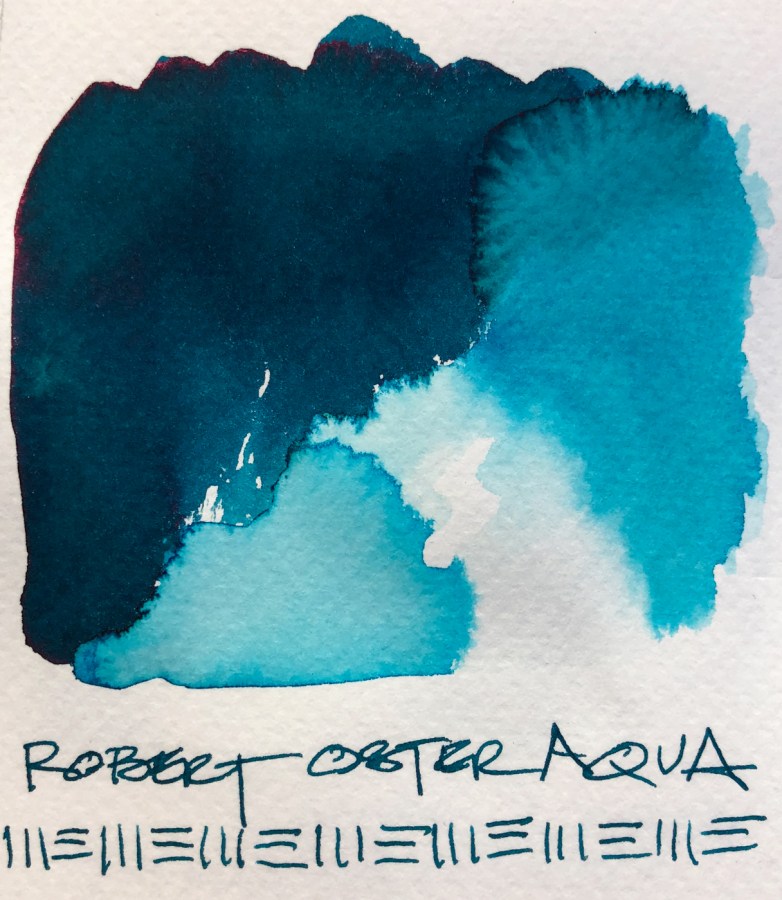 ROBERT OSTER AQUA